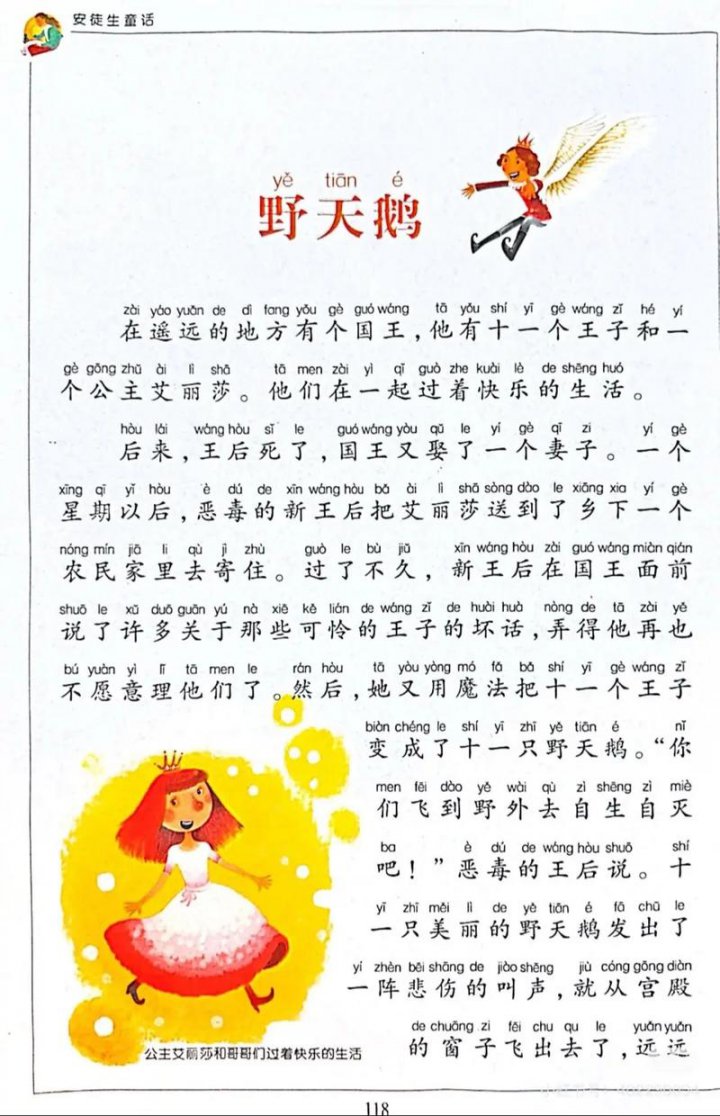 安徒生童话
yě tiān é
野天鹅
zài yáo yuǎn de dì fang yǒu gè guó wáng tā yǒu shí yī gè wáng zǐ hé yí
在遥远的地方有个国王,他有十一个王子和一
gè gōng zhǔ ài lì shā tā men zài yì qǐ guò zhe kuài lè de shēng huó
个公主艾丽莎。他们在一起过着快乐的生活。
hòu lái wáng hòu sǐ le guó wáng yòu qǔ le yí gè qī zi yí gè
后来,王后死了,国王又娶了一个妻子。一个
xīng qī yǐ hòu è dú de xīn wáng hòu bǎ ài lì shā sòng dào le xiāng xia yí gè
星期以后,恶毒的新王后把艾丽莎送到了乡下一个
nóng mín jiā li qù jì zhù guò le bù jiǔ xīn wáng hòu zài guó wáng miàn qián
农民家里去寄住。过了不久,新王后在国王面前
shuō le xǔ duō guān yú nà xiē kě lián de wáng zǐ de huài huà nòng de tā zài yě
说了许多关于那些可怜的王子的坏话,弄得他再也
bú yuàn yì lǐ tā men le rán hòu tā yòu yòng mó fǎ bǎ shí yī gè wáng zǐ
不愿意理他们了。然后,她又用魔法把十一个王子
biàn chéng le shí yī zhī yě tiān é nǐ
变成了十一只野天鹅。“你
men fēi dào yě wài qù zì shēng zì miè
们飞到野外去自生自灭
ba è dú de wáng hòu shuō shí
吧!”恶毒的王后说。十
yī zhī měi lì de yě tiān é fā chū le
一只美丽的野天鹅发出了
yí zhèn bēi shāng de jiào shēng jiù cóng gōng diàn
一阵悲伤的叫声,就从宫殿
de chuāng zi fēi chu qu le yuǎn yuǎn
的窗子飞出去了,远远
公主艾丽莎和哥哥们过着快乐的生活
118